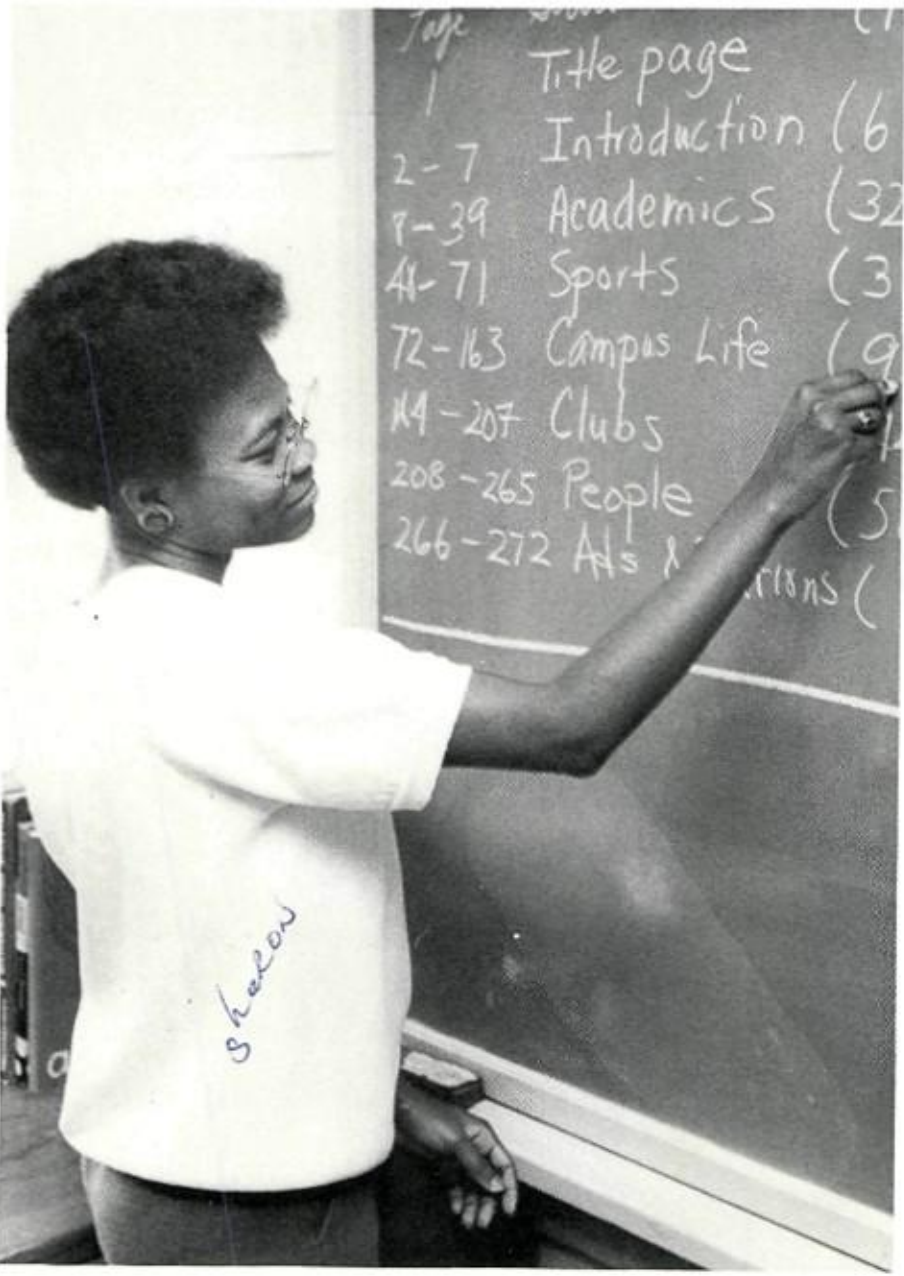 Page
1 Title page
2-7 Introduction (6
8-39 Academics (32
71 Sports (3
72-163 Campus Life (9
207 Clubs
208-265 People (5
266-272 Ads & (
Sharon
a